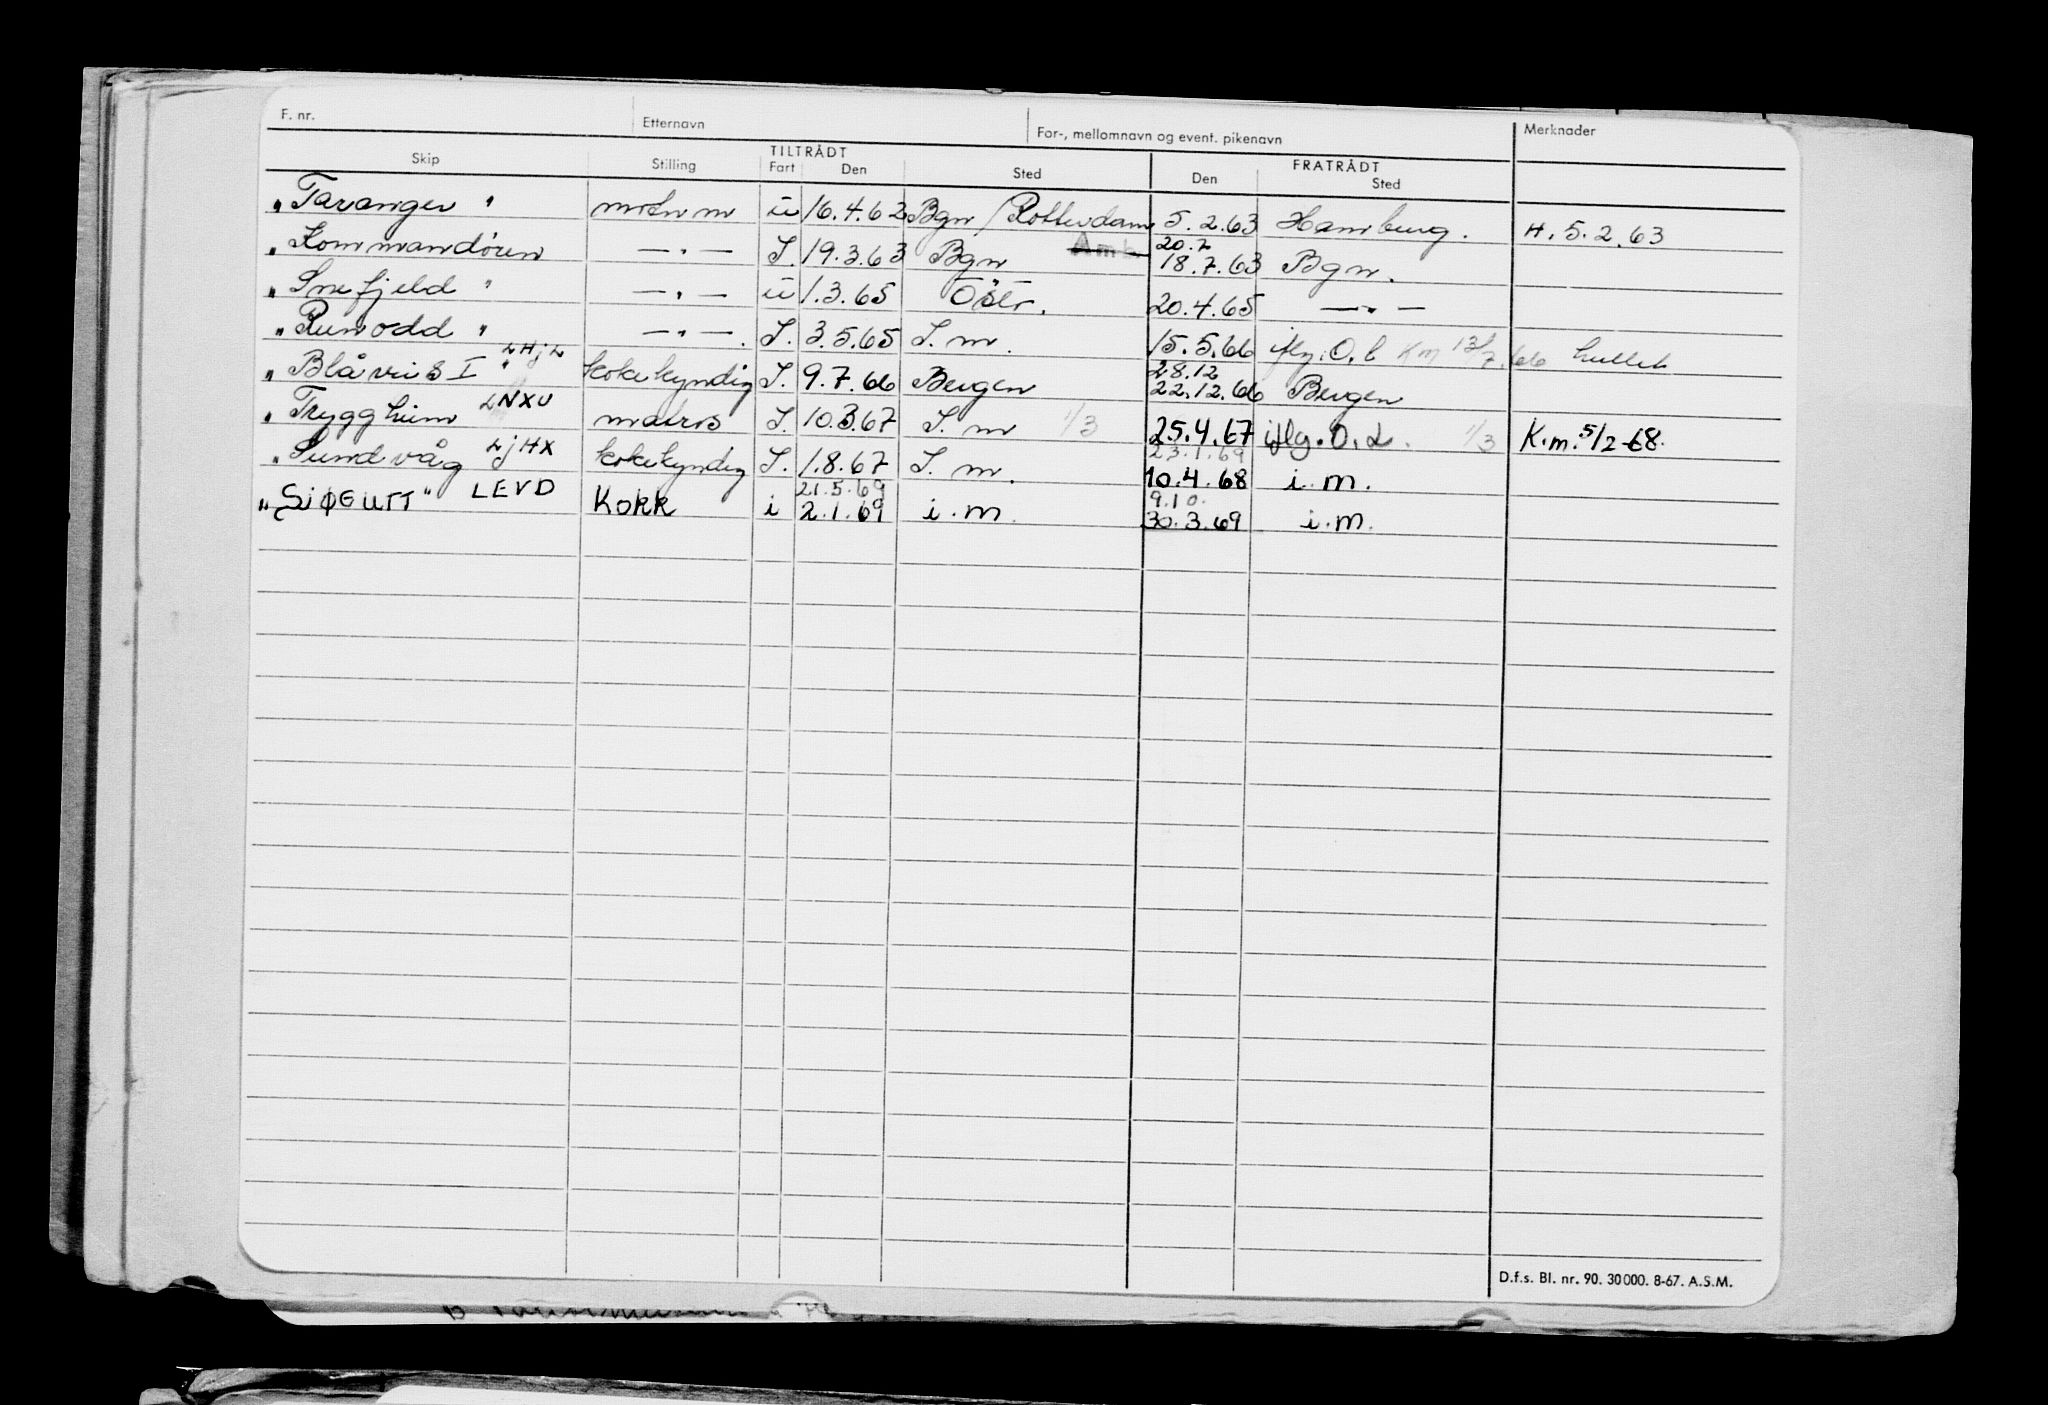 F. nr. Etternavn For-, mellomnavn og event. pikenavn Merknader
TILTRÅDT FRATRÅDT
Skip Stilling Fart Den Sted Den Sted
"Taranger" motm u 16.4.62 Bgn / Rotterdam 5.2.63 Hamburg. H. 5.2.63
20.7
"Kommandøren — " — I. 19.3.63 Bgn 18.7.63 Bgn.
"Snefjeld" — " — u 1.3.65 Östr. 20.4.65 — " —
"Runodd" — " — . I. 3.5.65 I. m. 15.5.66 iflg. O.l Km 13/7.66 hullet
LHjL 28.12
"Blåveis I" kokekyndig I. 9.7.66 Bergen 22.12.66 Bergen
"Tryggheim LNXU matros I. 10.3.67 I. m 1/3 25.4.67 iflg. O.L. 1/3 K.m. 5/2-68.
23.1.69
"Sundvåg LjHX kokekyndig I. 1.8.67 I. m. 10.4.68 i.m.
21.5.69 9.10.
LEVD Kokk i 2.1.69 i.m. 30.3.69 i.m.
D.f.s. Bl. nr. 90. 30000. 8-67. A.S.M.